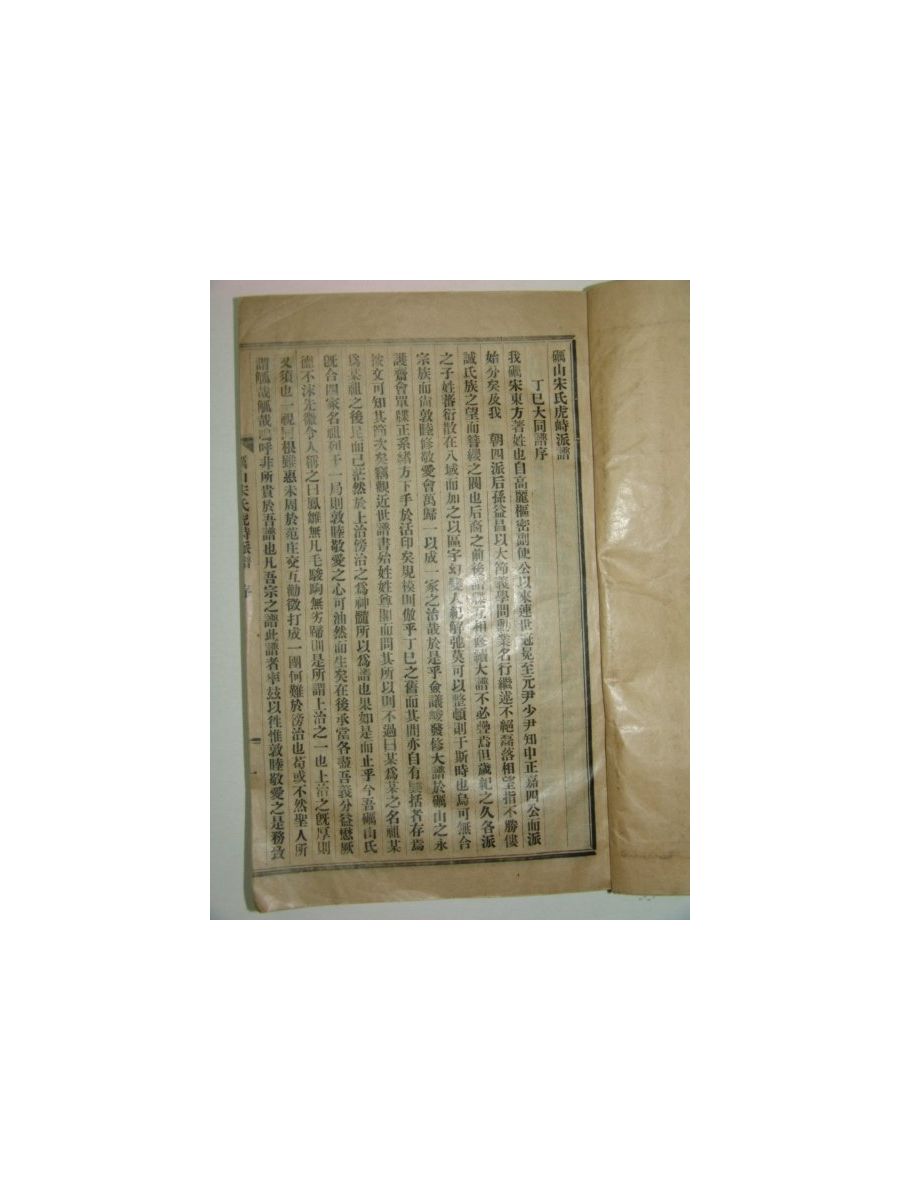 礪山宋氏虎峙派譜
丁巳大同譜序
我礪宋東方著姓也自高麗樞密副使公以來蓮世冠冕至元尹少尹知申正嘉四公而派
始分矣及我 朝四派后孫益昌以大節義學問勳業名行繼述不絕磊落相望指不勝僂
誠氏族之望而簪纓之閥也后裔之前後譜牒互相修續大譜不必疊爲但歲紀之久各派
之子姓蕃衍散在八域而加之以區宇幻變人紀解弛莫可以整頓則于斯時也烏可無合
宗族而尙敦睦修敬愛會萬歸一以成一家之治哉於是乎僉議峻發修大譜於礪山之永
護齋會單牒正系緒方下手於活印矣規模則倣乎丁巳之舊而其間亦自有檃括者存焉
披文可知其簡次矣竊觀近世譜書殆姓姓尊閣而問其所以則不過曰某爲某之名祖某
爲某祖之後昆而已茫然於上治傍治之爲神髓所以爲譜也果如是而止乎今吾礪山氏
旣合四家名祖列于一局則敦睦敬愛之心可油然而生矣在後承當各盡吾義分益懋厥
德不沫先徽令人稱之曰鳳雛無凡毛駿駒無劣蹄則是所謂上治之一也上治之旣厚則
又須也一視同根雖惠未周於范庄交互勸徵打成一團何難於傍治也苟或不然聖人所
謂觚哉觚哉嗚呼非所貴於吾譜也凡吾宗之譜此譜者率玆以徃惟敦睦敬愛之是務玫
礪山宋氏虎峙派譜 序 一